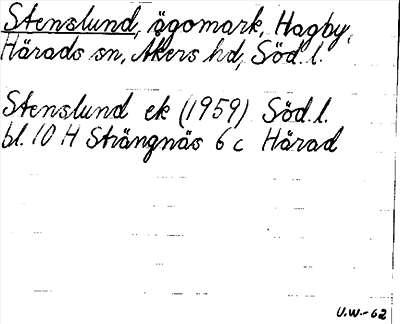 Stenslund, ägomark, Hagby,
Härads sn, Åkers hd, Söd. l.
Stenslund ek (1959) Söd. l.
bl. 10 H Strängnäs 6 c Härad
U.W.-62